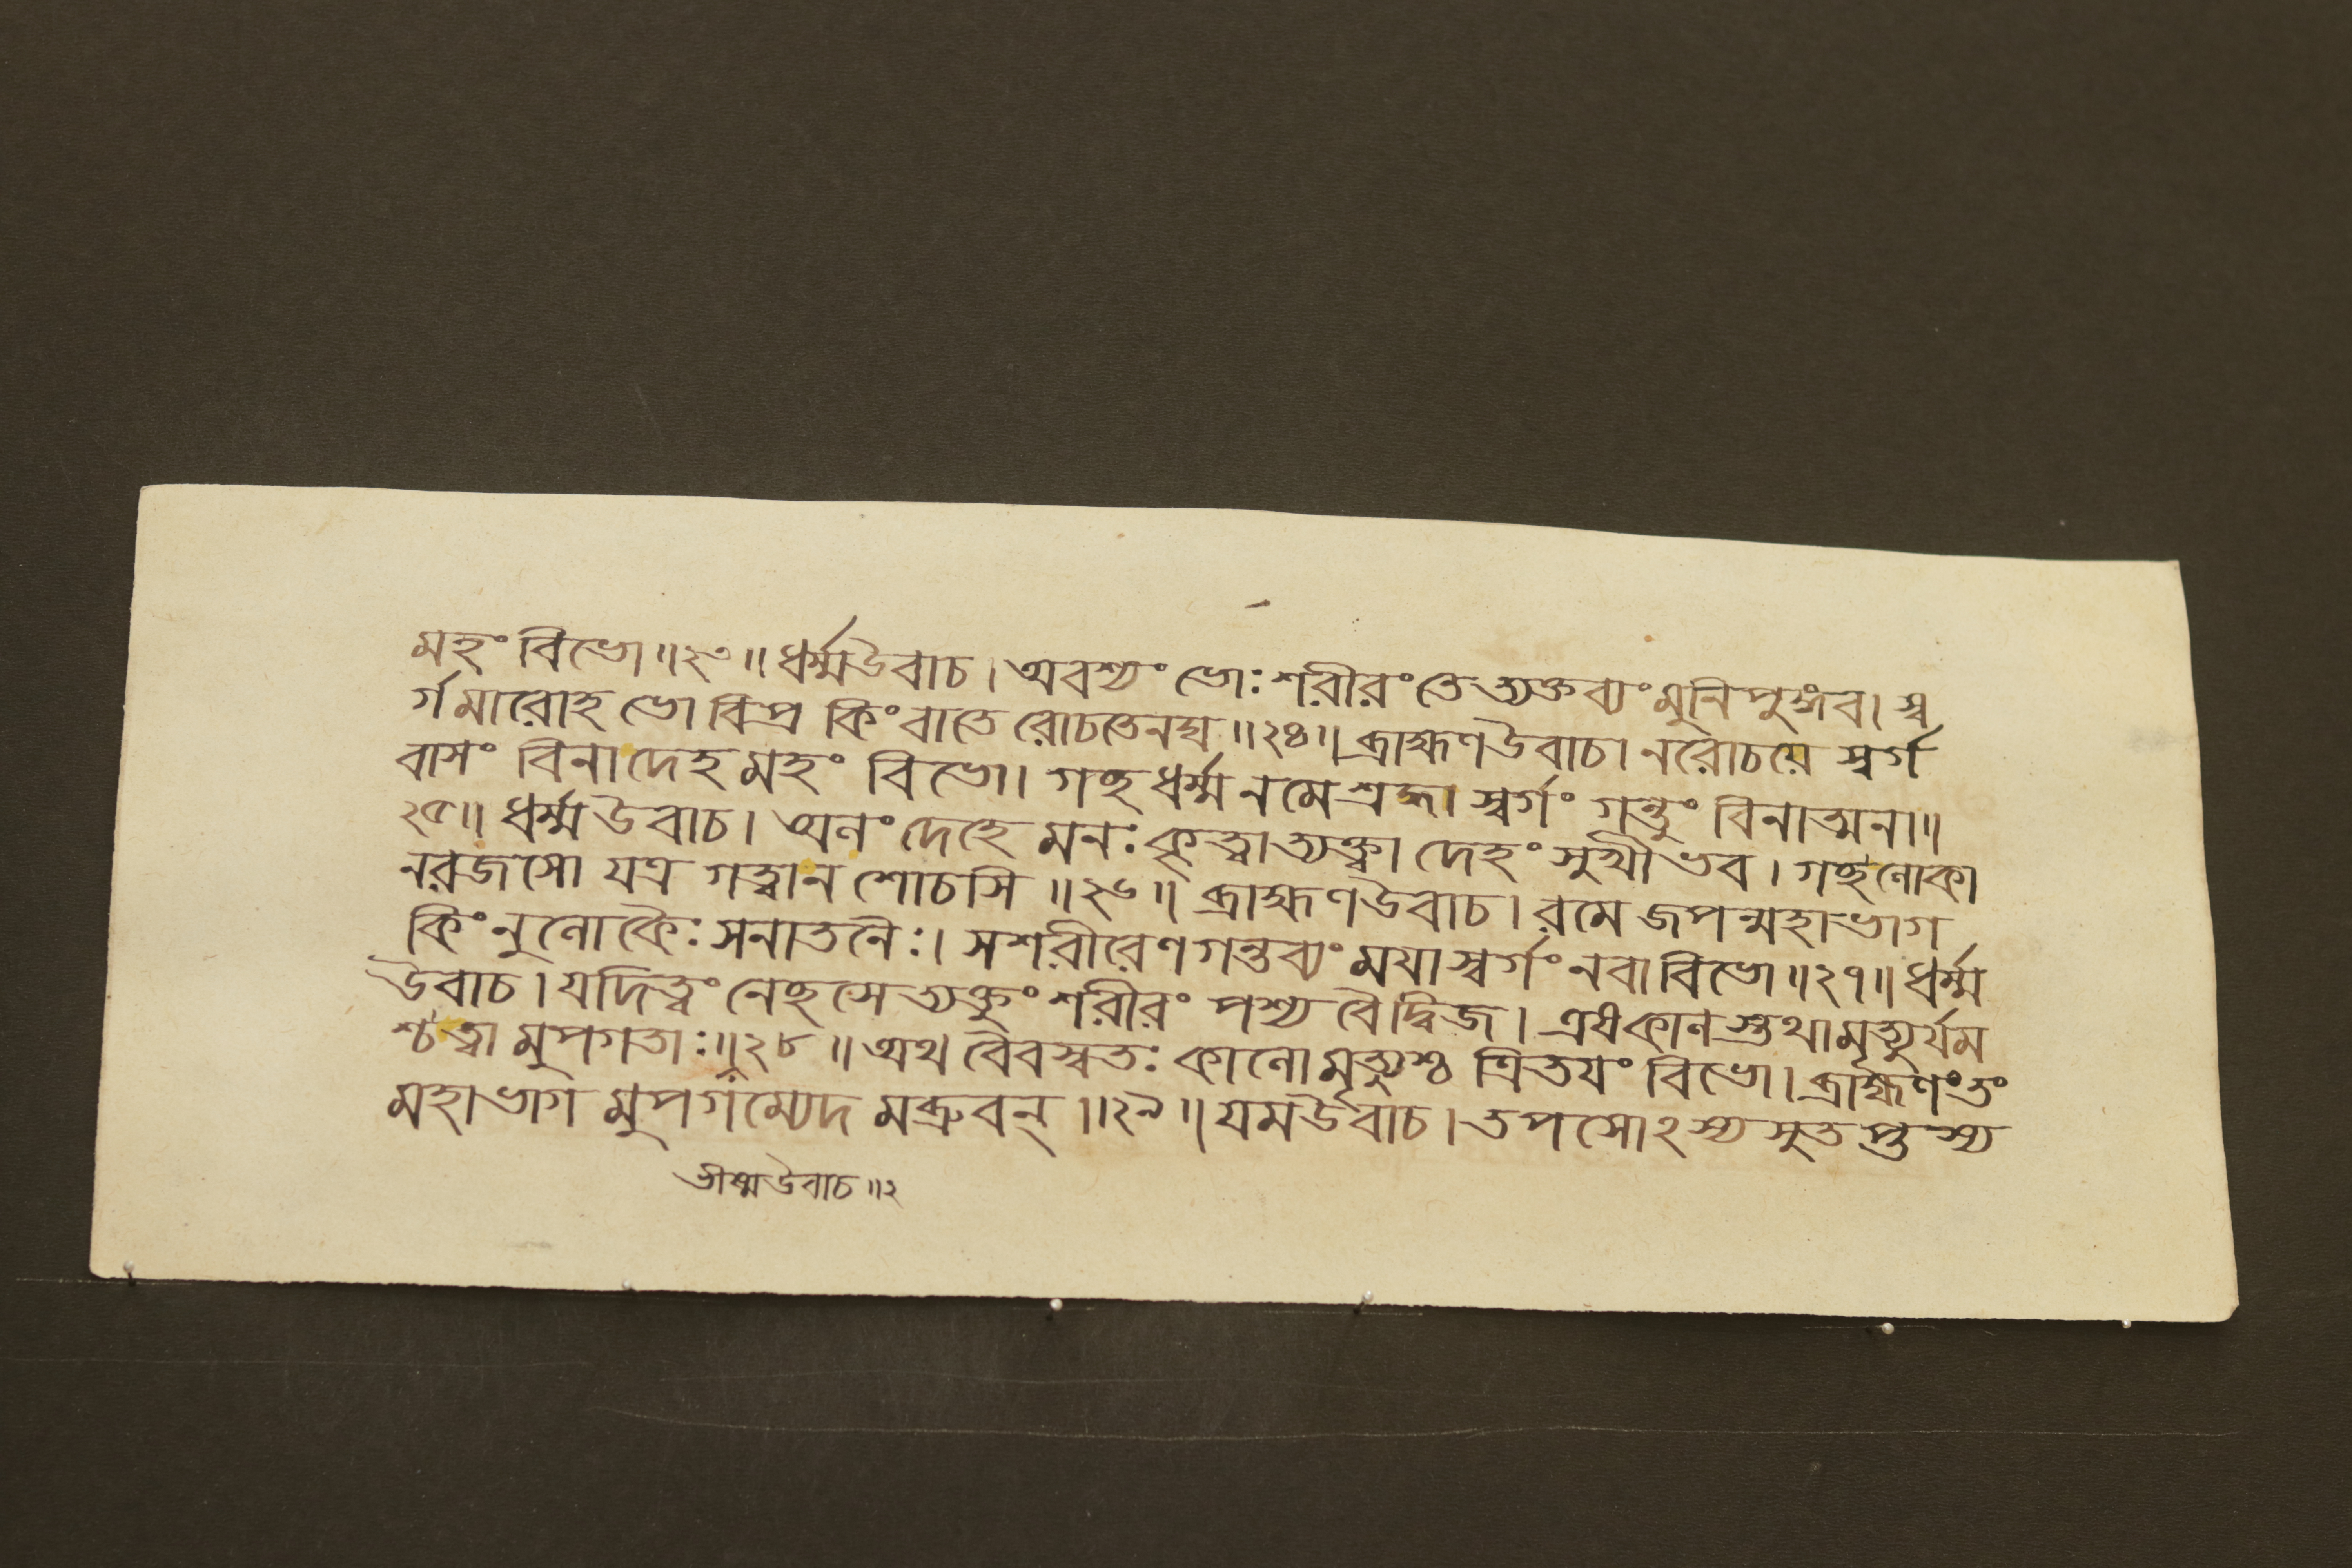 মহং বিভো॥২৩॥ ধর্ম্মউবাচ। অবশ্যং ভোঃ শরীরং তে ত্যক্তব্যং মুনিপুঙ্গব। স্ব
র্গমারোহ ভো বিপ্র কিং বা তে রোচতেনঘ॥২৪॥ ব্রাহ্মণউবাচ। নরোচয়ে স্বর্গ
বাসং বিনা দেহ মহং বিভো। গচ্ছ ধর্ম্ম নমে শ্রদ্ধা স্বর্গং গন্তুং বিনাত্মনা॥
২৫॥ ধর্ম্ম উবাচ। অলং দেহে মনঃ কৃত্বা ত্যক্ত্বা দেহং সুখী ভব। গচ্ছ লোকা
নরজসো যত্র গত্বা ন শোচসি ॥২৬॥ ব্রাহ্মণউবাচ। রমে জপন্মহাভাগ
কিং নু লোকৈঃ সনাতনৈঃ। সশরীরেণ গন্তব্যং ময়া স্বর্গং নবা বিভো॥২৭॥ ধর্ম্ম
উবাচ। যদি ত্বং নেচ্ছসে ত্যক্তুং শরীরং পশ্য বৈ দ্বিজ। এষ কালস্তথা মৃত্যুর্যম
শ্চ ত্বা মুপগতাঃ॥২৮॥ অথ বৈবস্বতঃ কালো মৃত্যুশ্চ ত্রিতয়ং বিভো। ব্রাহ্মণং তং
মহাভাগ মুপগম্যেদ মব্রুবন্॥২৯॥ যমউবাচ। তপসোঽস্য সুতপ্তস্য
ভীষ্মউবাচ॥২